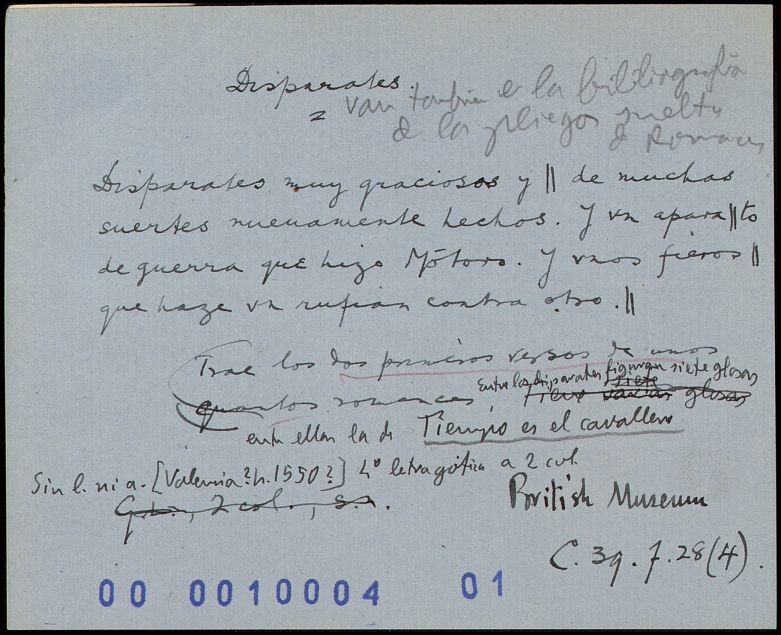 Disparates.
van tambien e la bibliografía
d los pliegos suelto
d Romances
Disparates muy graciosos y || de muchas
suertes nueuamente hechos. Y vn apara||to
de guerra que hizo Mõtoro. Y vnos fieros ||
que haze vn rufian contra otro. ||
Trae los dos primeros versos de unos
Entre los disparates figuran siete glosas
quantos romances, Siete varias glosas
entre ellas la de Tiempo es el cavallero
Sin l. ni a. [Valencia? h. 1550?] 4º letra gótica a 2 col.
G.L., 2 col., s.a.
British Museum
C. 39. f. 28 (4).
00 0010004 01